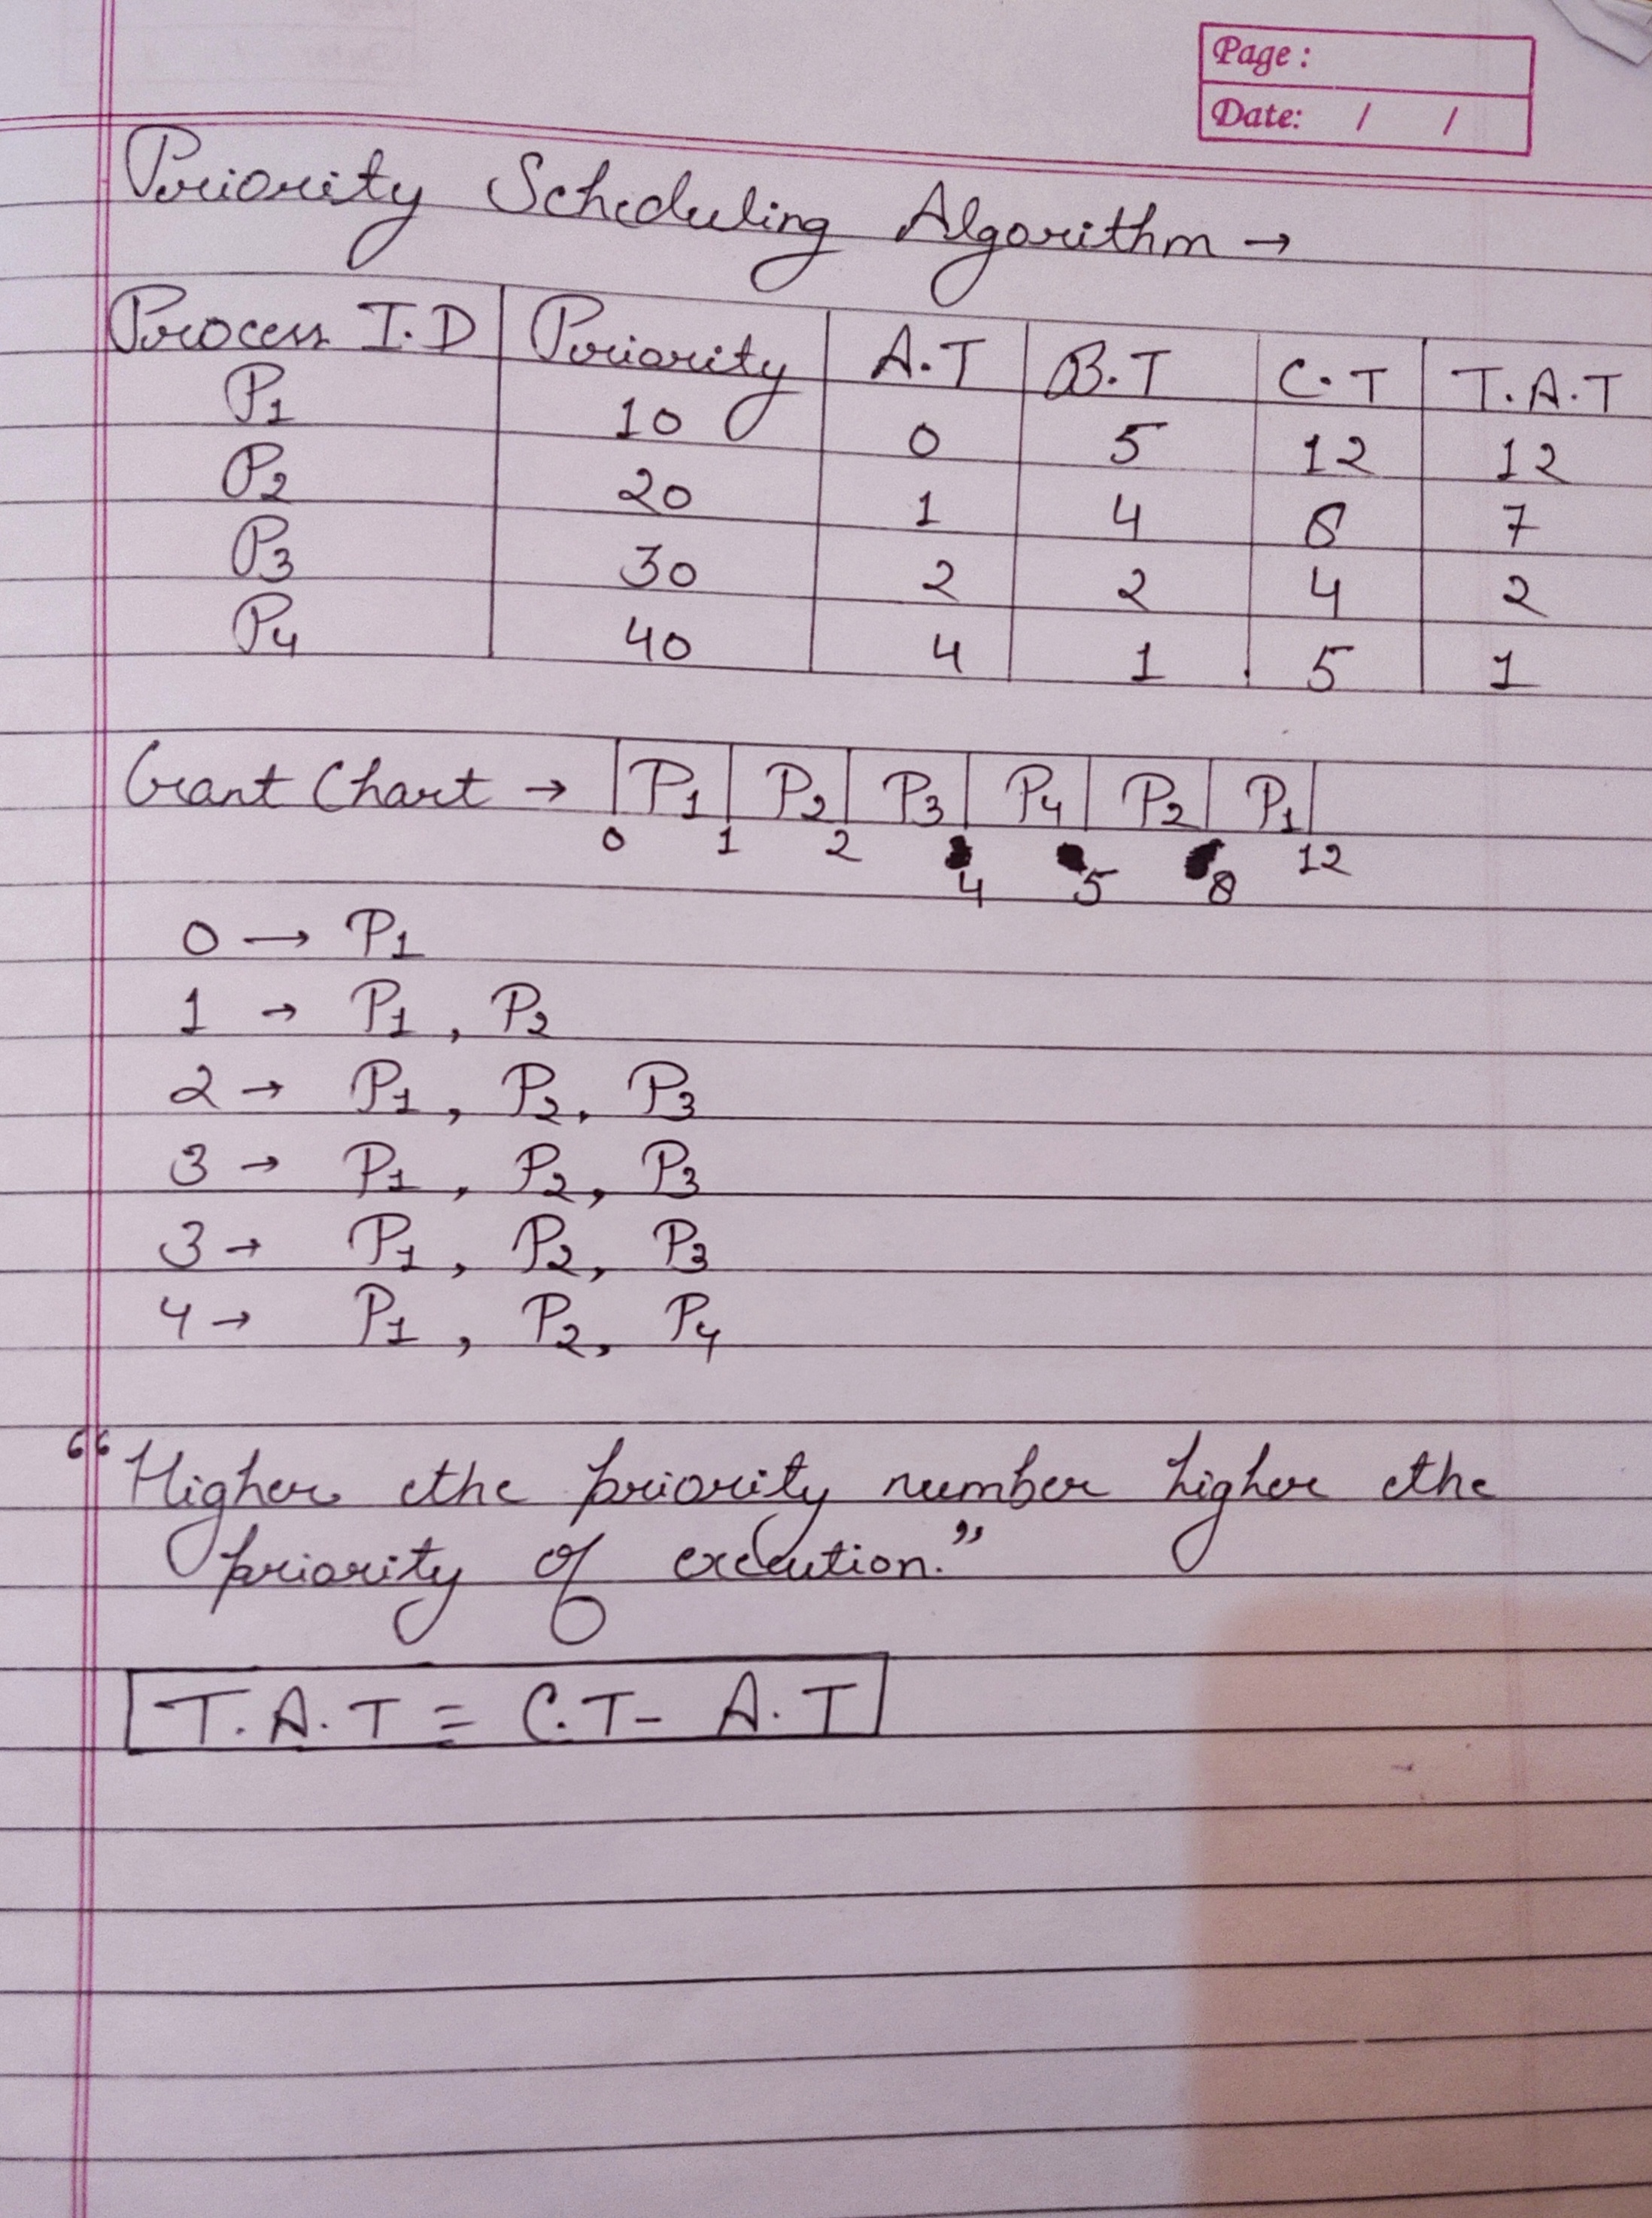 Page :
Date: / /
Priority Scheduling Algorithm →
Process I.D Priority A.T B.T C.T T.A.T
P1 10 0 5 12 12
P2 20 1 4 8 7
P3 30 2 2 4 2
P4 40 4 1 5 1
Grant Chart → P1 P2 P3 P4 P2 P1
0 1 2 4 5 8 12
0 → P1
1 → P1, P2
2 → P1, P2, P3
3 → P1, P2, P3
3 → P1, P2, P3
4 → P1, P2, P4
“Higher the priority number higher the
priority of execution.”
T.A.T = C.T - A.T